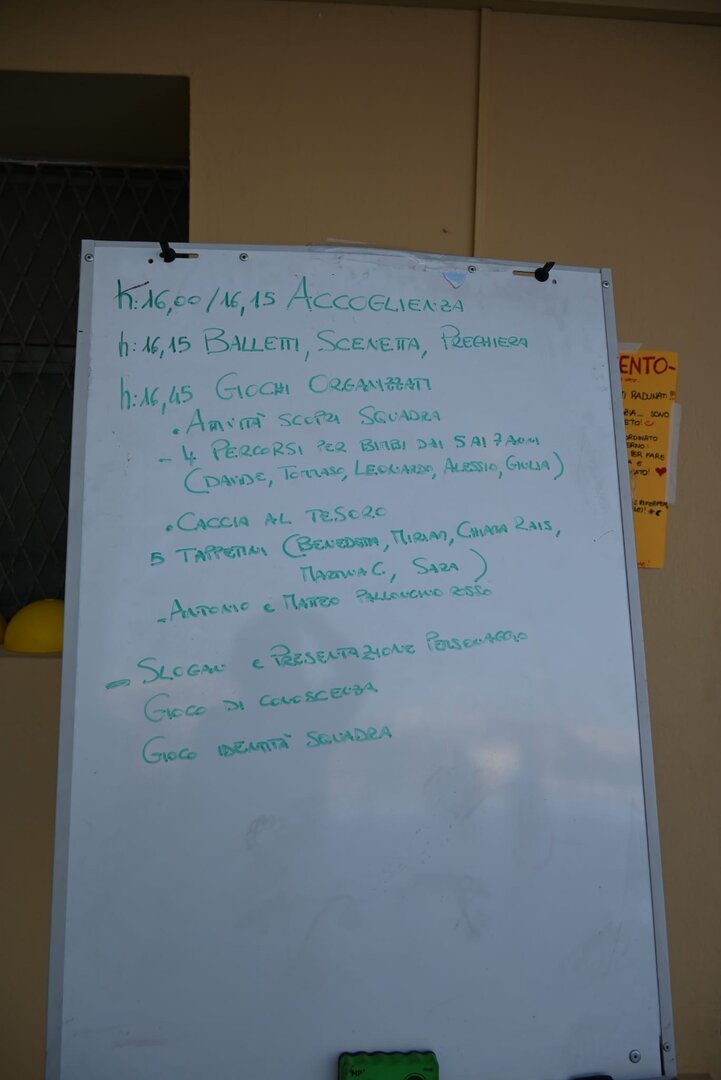 h:16,00/16,15 ACCOGLIENZA
h:16,15 BALLETTI, SCENETTA, PREGHIERA
h:16,45 GIOCHI ORGANIZZATI
• ATTIVITÀ SCOPRI SQUADRA
- 4 PERCORSI PER BIMBI DAI 5 AI 7 ANNI
(DAVIDE, TOMMASO, LEONARDO, ALESSIO, GIULIA)
• CACCIA AL TESORO
5 TAPPETINI (BENEDETTA, MIRIAM, CHIARA RAIS,
MARTINA C., SARA)
- ANTONIO e MATTEO PALLONCINO ROSSO
- SLOGAN e PRESENTAZIONE PERSONAGGIO
GIOCO DI CONOSCENZA
GIOCO IDENTITÀ SQUADRA
ENTO-
RADUNATI !!
SONO
ORDINATO
ERNO:
PER FARE